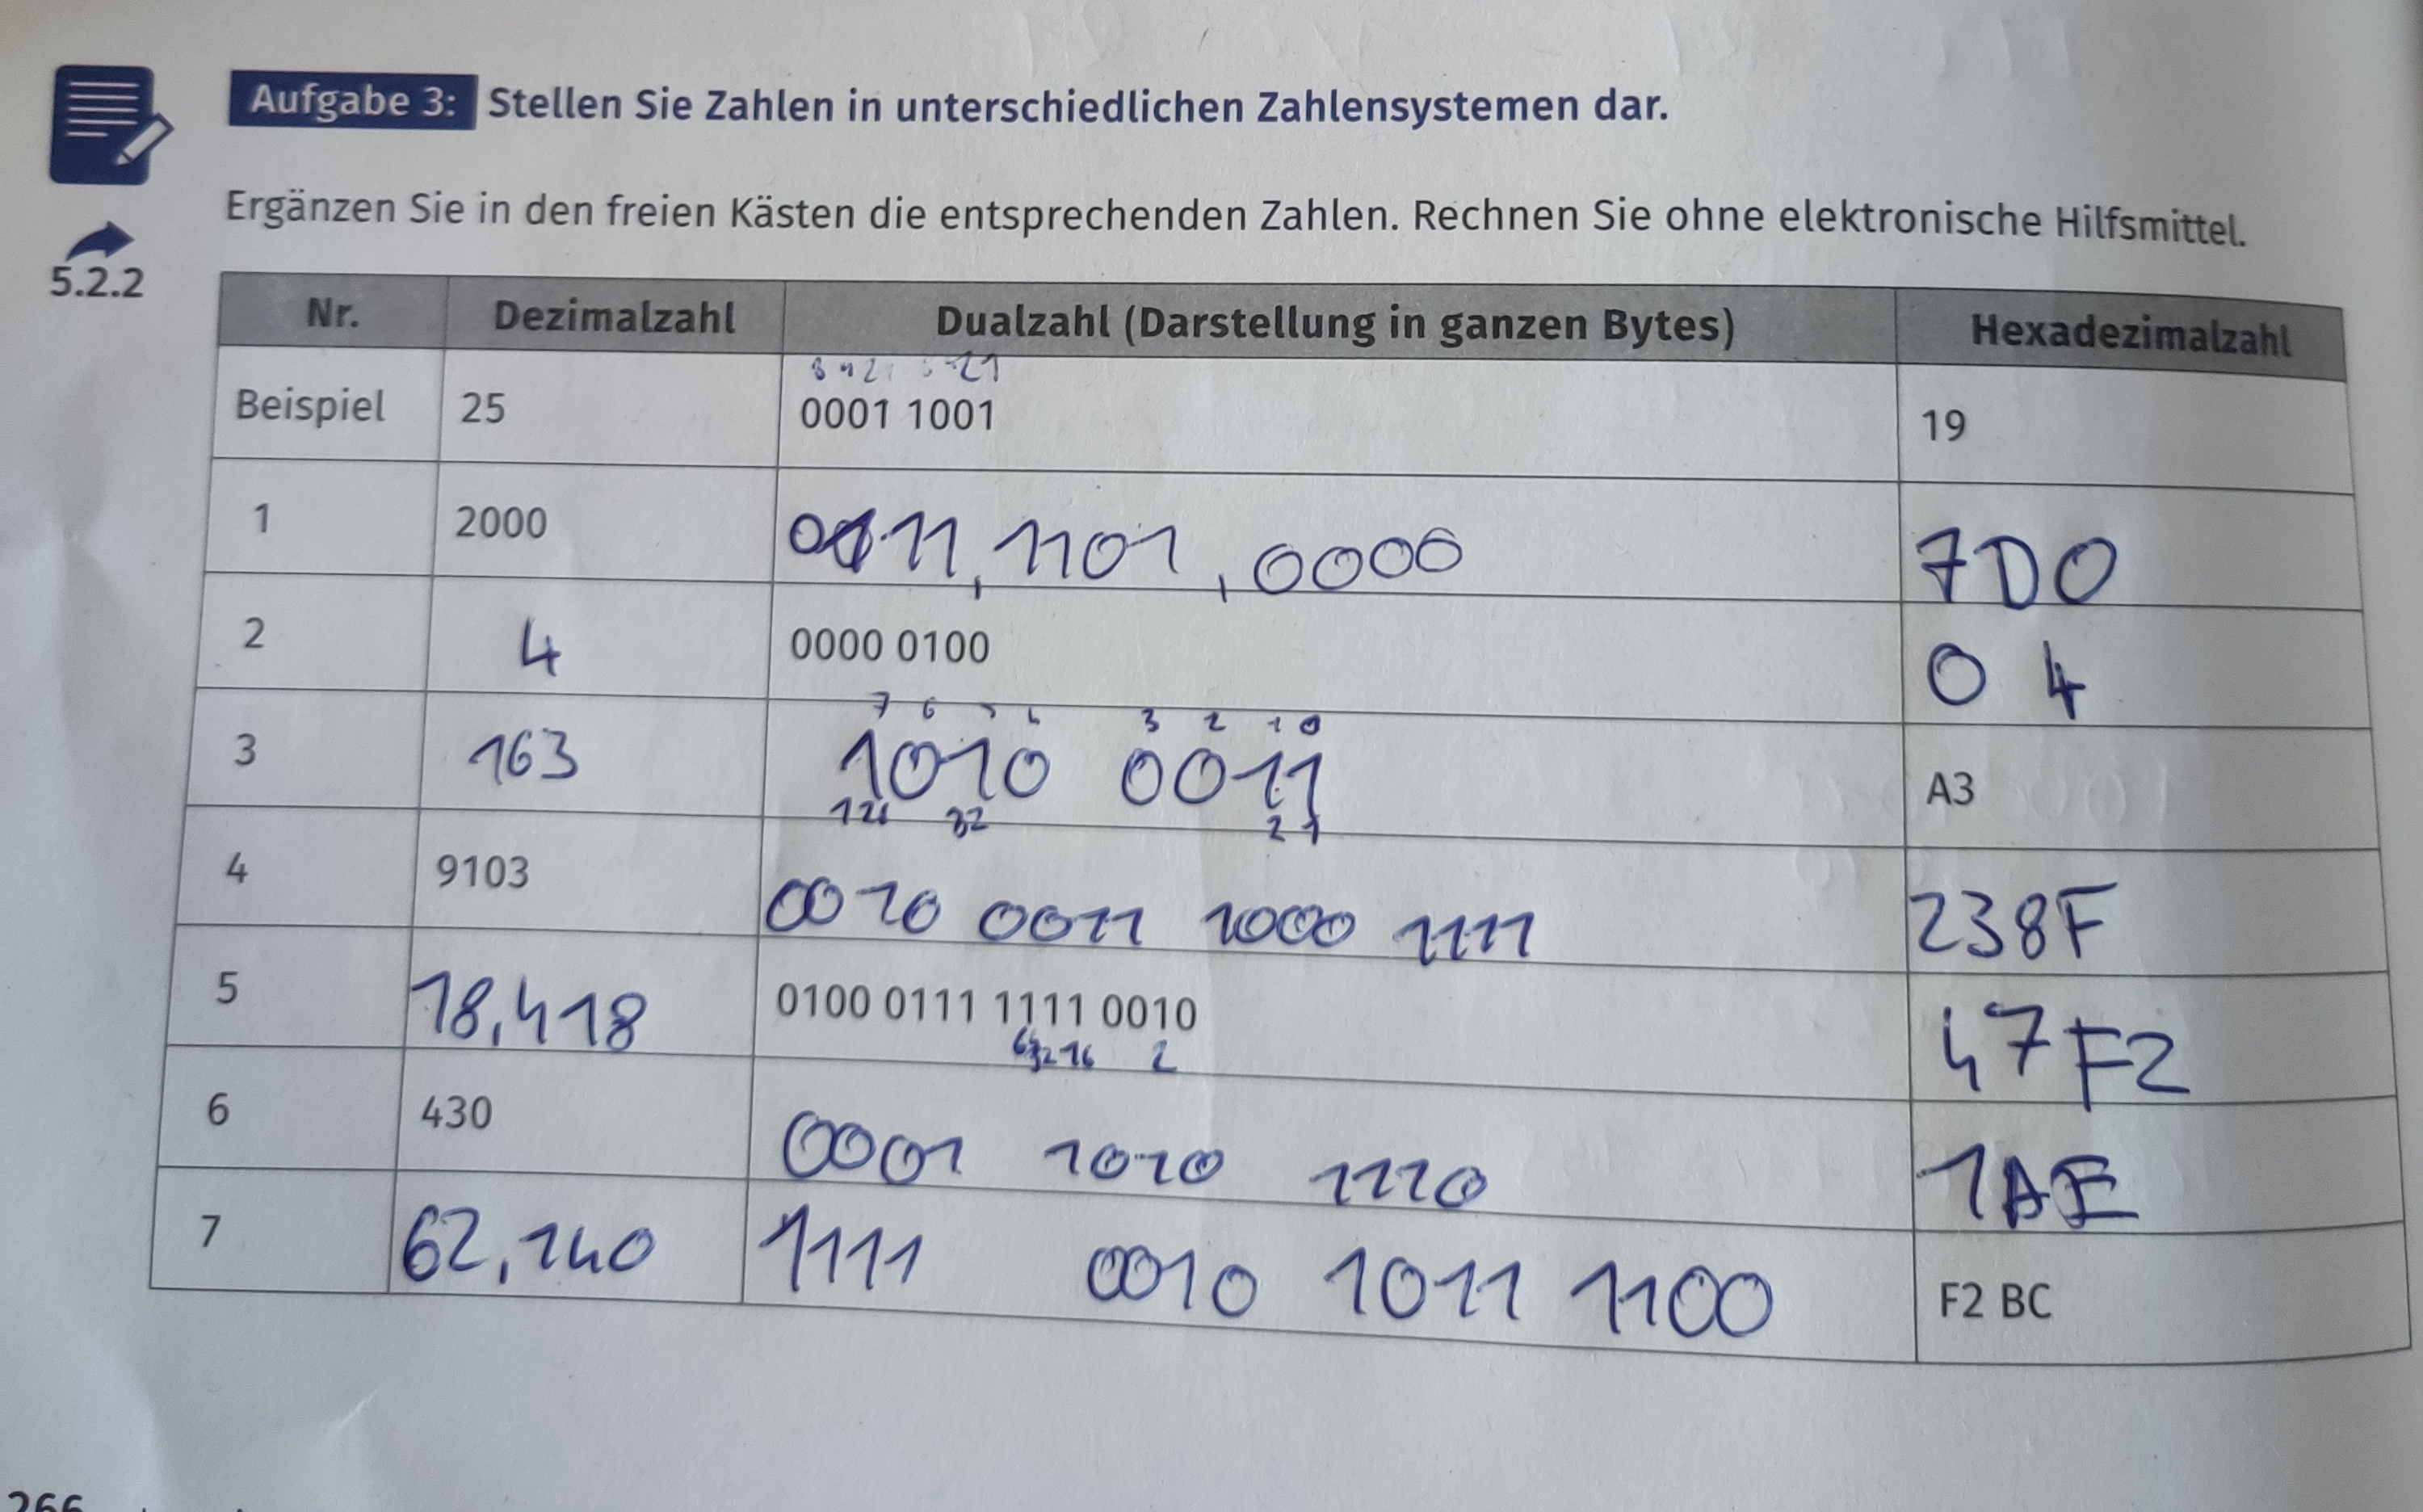 Aufgabe 3: Stellen Sie Zahlen in unterschiedlichen Zahlensystemen dar.
Ergänzen Sie in den freien Kästen die entsprechenden Zahlen. Rechnen Sie ohne elektronische Hilfsmittel.
5.2.2
Nr. Dezimalzahl Dualzahl (Darstellung in ganzen Bytes) Hexadezimalzahl
Beispiel 25 0001 1001 19
1 2000 0111, 1101, 0000 7D0
2 4 0000 0100 0 4
7 6 3 2 1 0
3 163 1010 0011 A3
128 32 2 1
4 9103 0010 0011 1000 1111 238F
5 18,418 0100 0111 1111 0010 47F2
64 32 16 2
6 430 0001 1010 1110 1AE
7 62,140 1111 0010 1011 1100 F2 BC
266